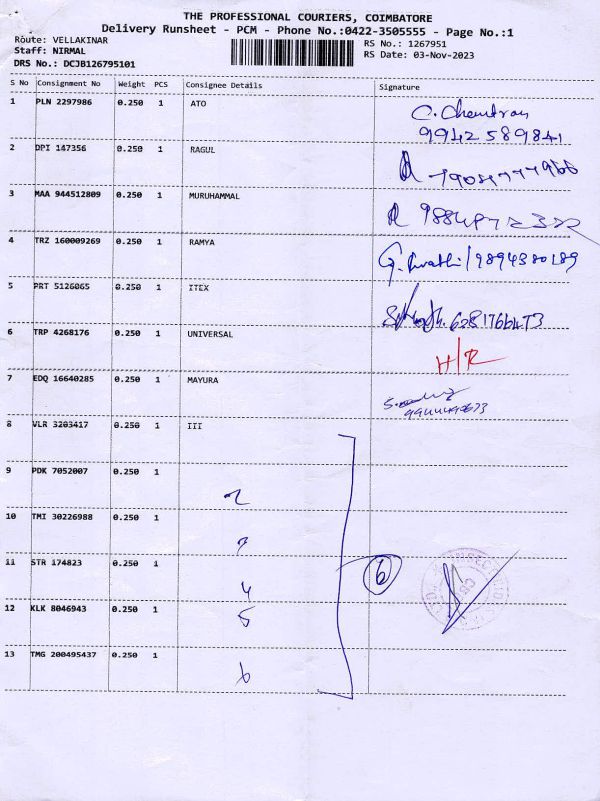 THE PROFESSIONAL COURIERS, COIMBATORE
Delivery Runsheet - PCM - Phone No.:0422-3505555 - Page No.:1
Route: VELLAKINAR
Staff: NIRMAL
DRS No.: DCJB126795101
RS No.: 1267951
RS Date: 03-Nov-2023
S No Consignment No Weight PCS Consignee Details Signature
1 PLN 2297986 0.250 1 ATO
9942589841
2 DPI 147356 0.250 1 RAGUL
3 MAA 944512809 0.250 1 MURUHAMMAL
4 TRZ 160009269 0.250 1 RAMYA
9894380189
5 PRT 5126065 0.250 1 ITEX
6 TRP 4268176 0.250 1 UNIVERSAL
7 EDQ 16640285 0.250 1 MAYURA
8 VLR 3203417 0.250 1 III
9 PDK 7052007 0.250 1
2
10 TMI 30226988 0.250 1
3
11 STR 174823 0.250 1
4
6
12 KLK 8046943 0.250 1
5
13 TMG 200495437 0.250 1
6